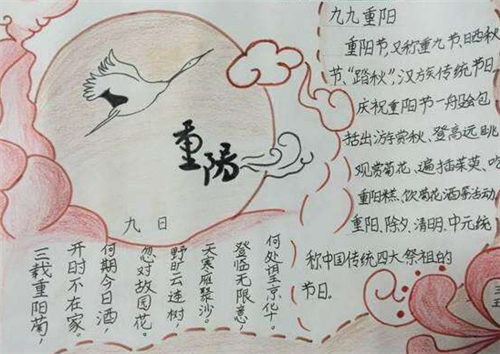 重阳
九日
三载重阳菊，
开时不在家。
何期今日酒，
忽对故园花。
野旷云连树，
天寒雁聚沙。
登临无限意，
何处望京华。
九九重阳
重阳节，又称重九节、晒秋
节、“踏秋”，汉族传统节日。
庆祝重阳节一般会包
括出游赏秋、登高远眺
观赏菊花、遍插茱萸、吃
重阳糕、饮菊花酒等活动，
重阳、除夕、清明、中元统
称中国传统四大祭祖的
节日。